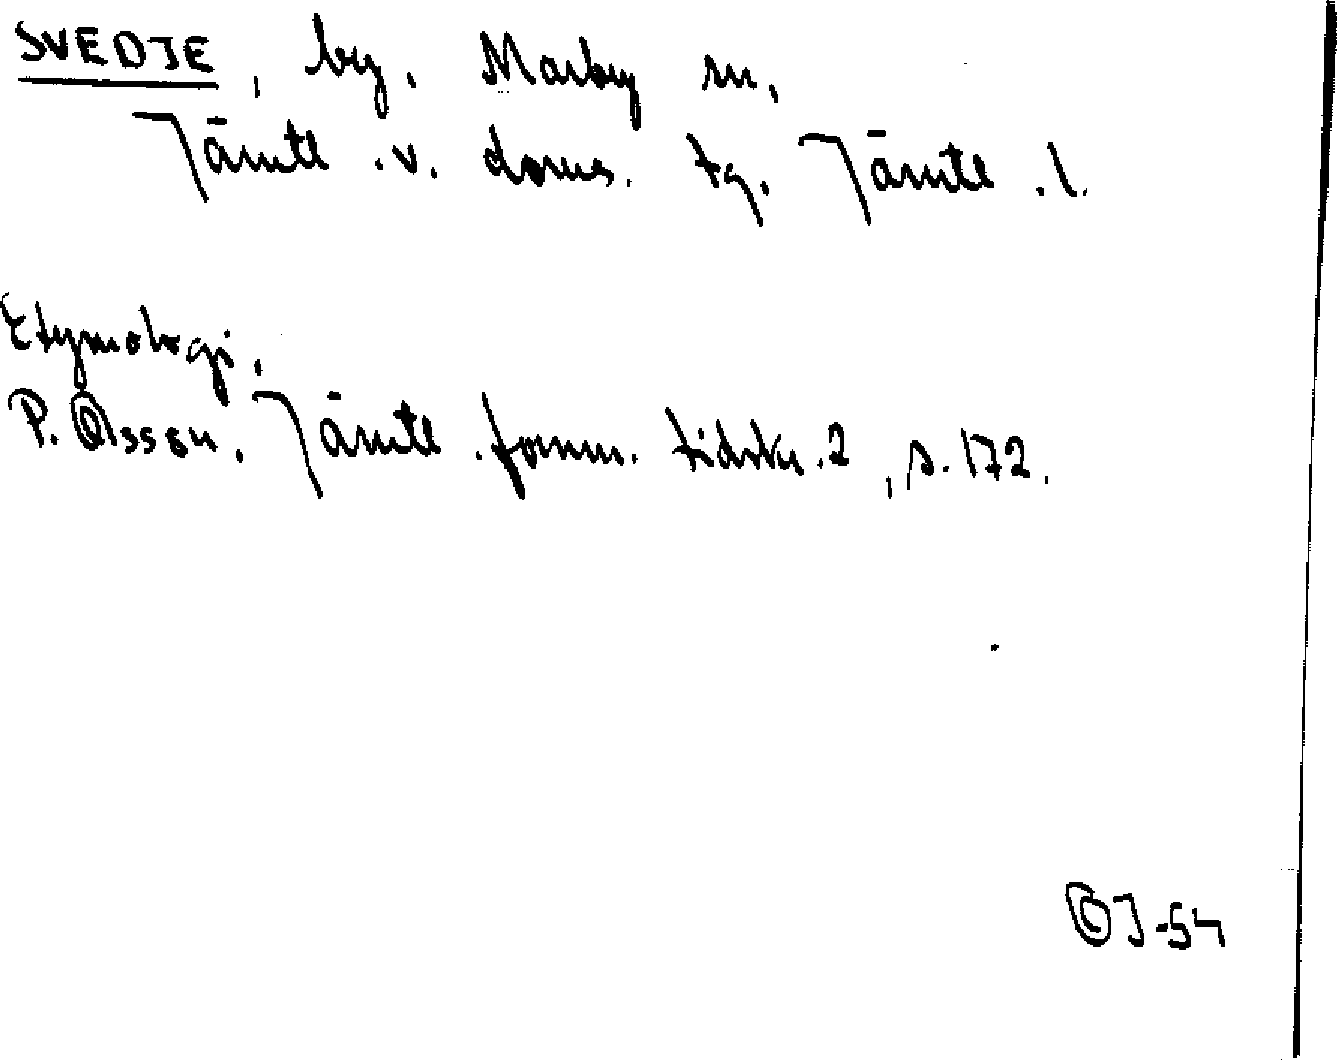 SVEDJE, by. Marby sn,
Jämtl. v. doms. tg. Jämtl. l.
Etymologi.
P. Olsson, Jämtl. fornm. tidskr. 2, s. 172.
OJ-54